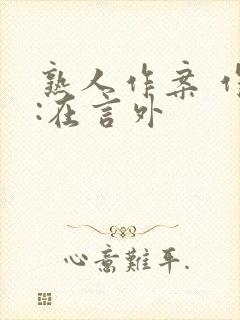 熟人作案
:在言外
心意難平.